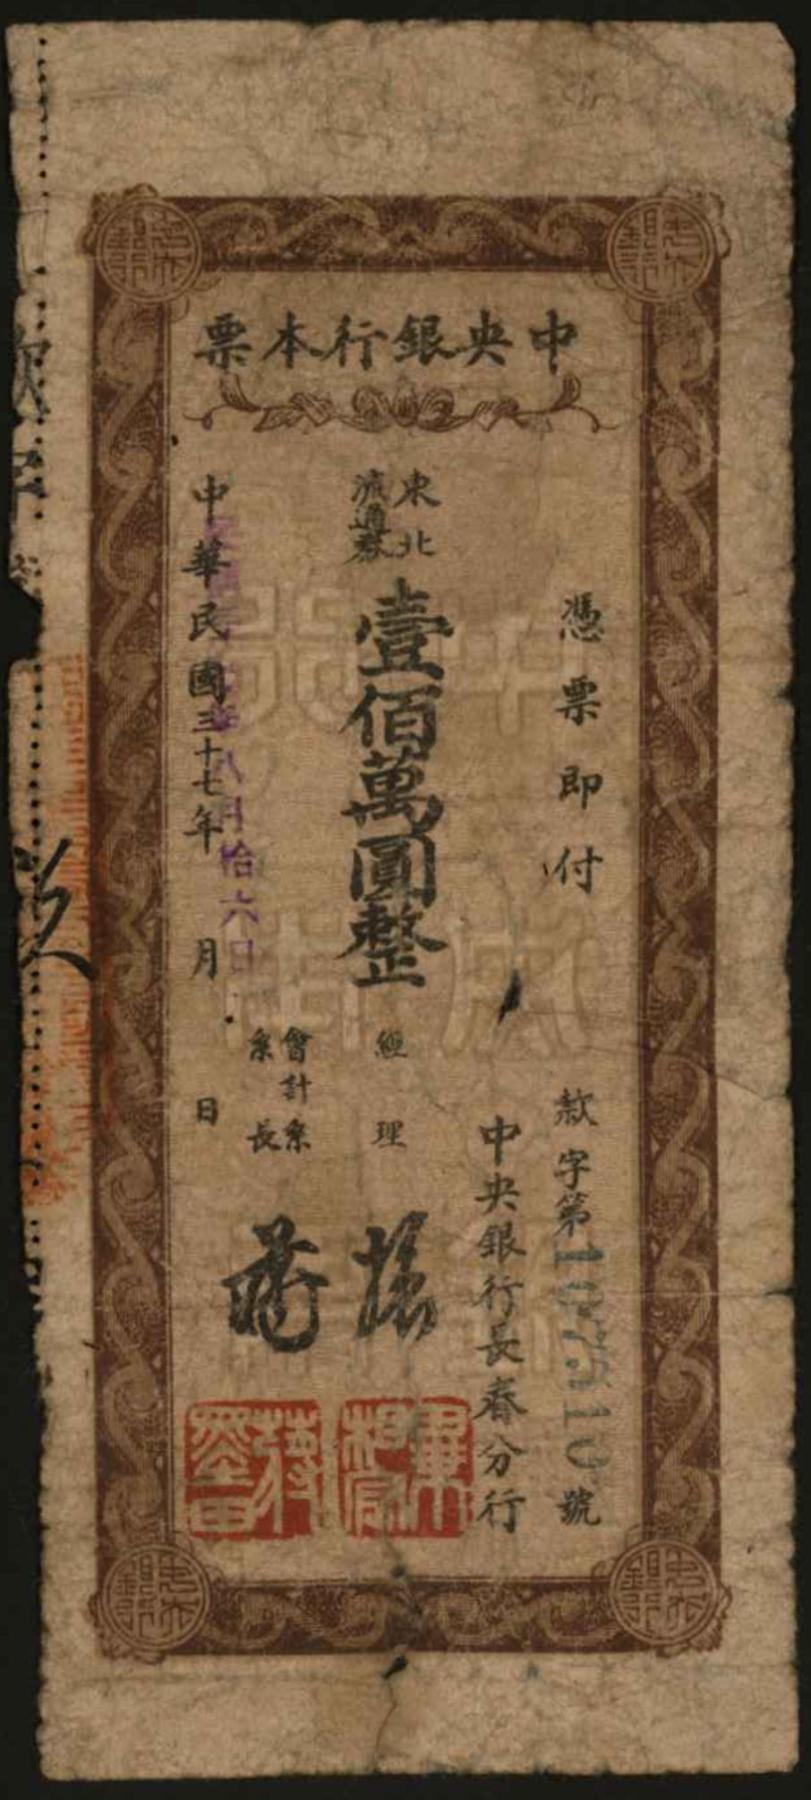 中央銀行本票
憑票即付
款字第1075510號
中央銀行長春分行
東北
流通券
壹佰萬圓整
經理
會計系
系長
中華民國三十七年 月 日
八月拾六日